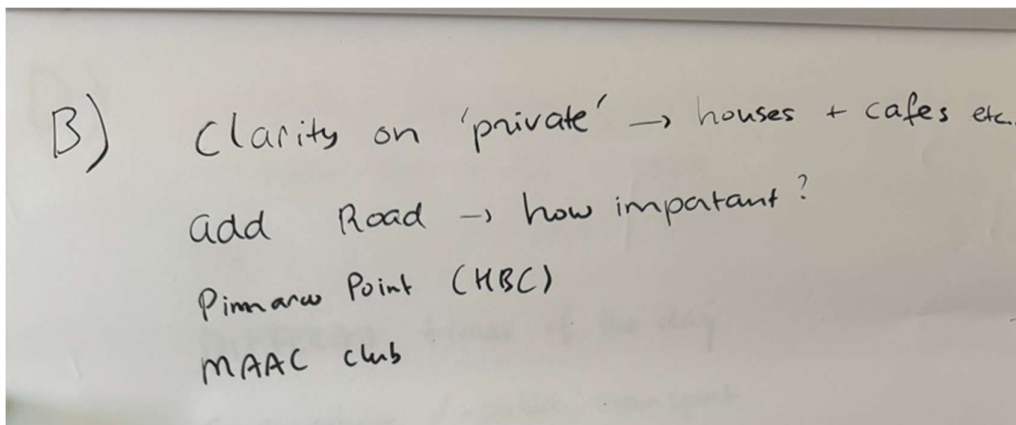 B) Clarity on 'private' → houses + cafes etc.
add Road → how important?
Point (HBC)
MAAC club